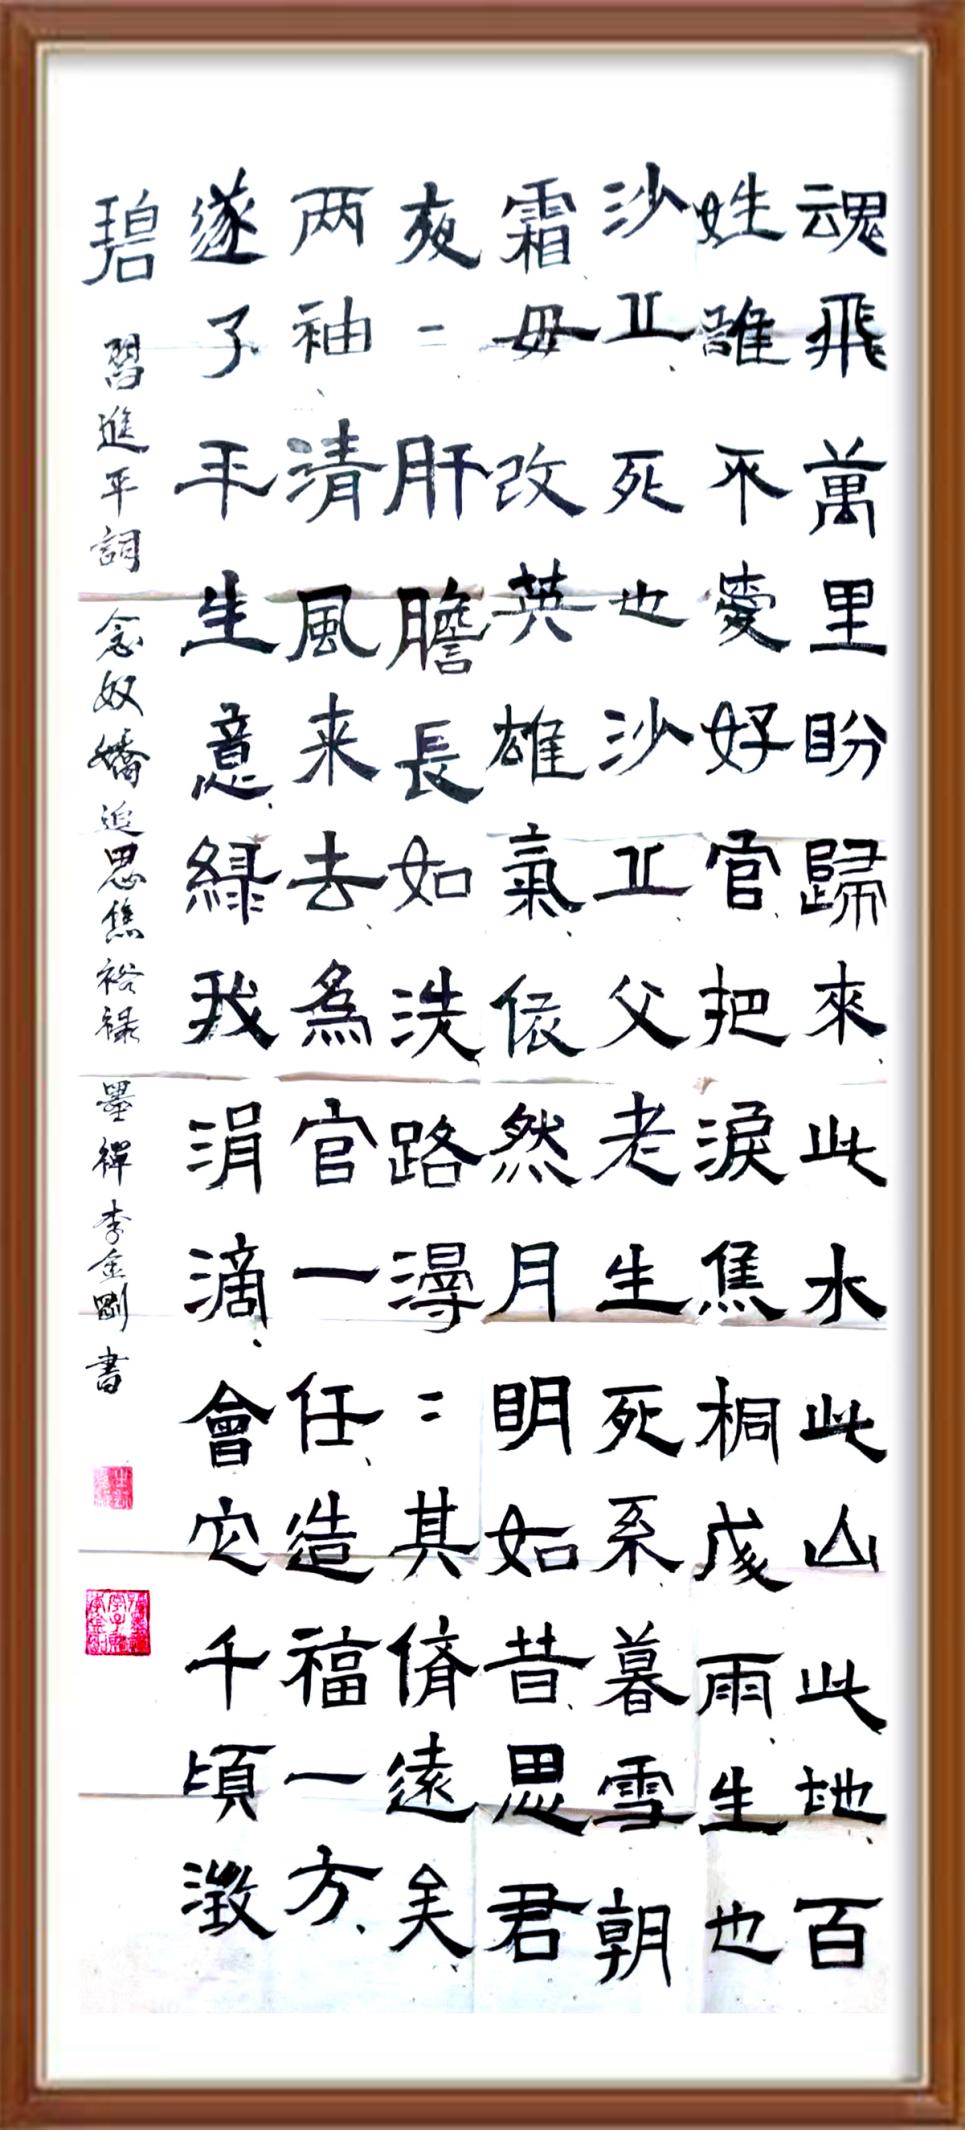 魂飛萬里盼歸來、此水此山此地、百
姓誰不愛好官把淚焦桐成雨、生也
沙丘、死也沙丘、父老生死系暮雪朝
霜毋改英雄氣、依然月明如昔、思君
夜=肝膽長如洗路漫=其脩遠矣
两袖清風来去、為官一任、造福一方、
遂了平生意、綠我涓滴、會它千頃澂
碧 習進平詞 念奴嬌追思焦裕祿 墨禪李金剛書